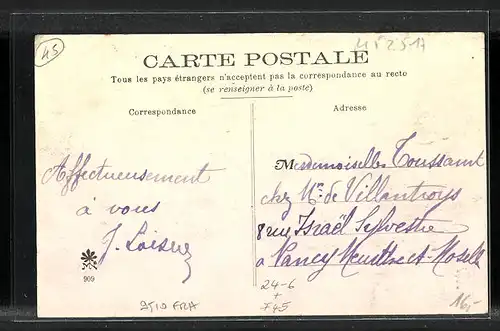 45
MF251A
CARTE POSTALE
Tous les pays étrangers n'acceptent pas la correspondance au recto
(se renseigner à la poste)
Correspondance
Adresse
Mesdemoiselles Toussaint
chez Mr. de Villantroys
8 rue Israël Sylvestre
à Nancy Meurthe-et-Moselle
Affectueusement
à vous
J.
909
24-6
+
F45
16,-